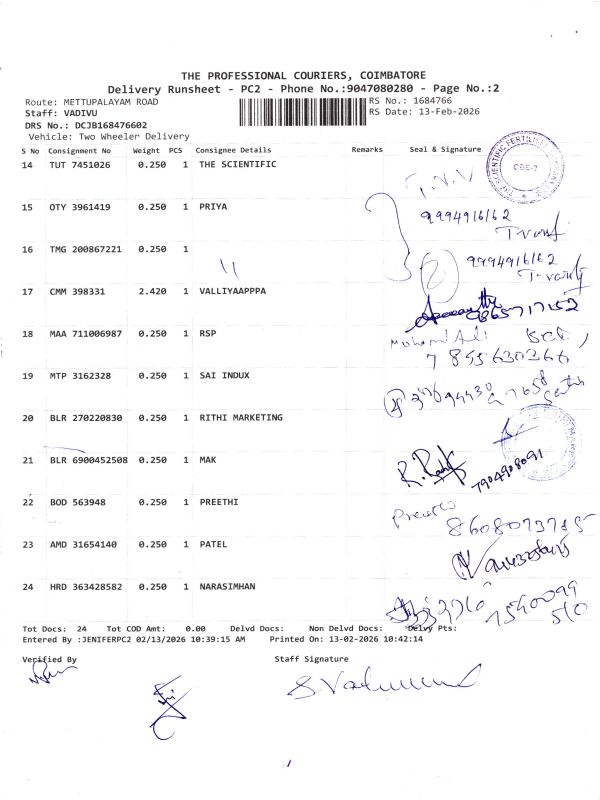 THE PROFESSIONAL COURIERS, COIMBATORE
Delivery Runsheet - PC2 - Phone No.:9047080280 - Page No.:2
Route: METTUPALAYAM ROAD
RS No.: 1684766
Staff: VADIVU
RS Date: 13-Feb-2026
DRS No.: DCJB168476602
Vehicle: Two Wheeler Delivery
S No Consignment No Weight PCS Consignee Details Remarks Seal & Signature
14 TUT 7451026 0.250 1 THE SCIENTIFIC
T.N.V
CBE-2
15 OTY 3961419 0.250 1 PRIYA
9994916162
16 TMG 200867221 0.250 1
9994916162
17 CMM 398331 2.420 1 VALLIYAAPPPA
18 MAA 711006987 0.250 1 RSP
7855630266
19 MTP 3162328 0.250 1 SAI INDUX
20 BLR 270220830 0.250 1 RITHI MARKETING
21 BLR 6900452508 0.250 1 MAK
7904908091
22 BOD 563948 0.250 1 PREETHI
23 AMD 31654140 0.250 1 PATEL
24 HRD 363428582 0.250 1 NARASIMHAN
Tot Docs: 24 Tot COD Amt: 0.00 Delvd Docs: Non Delvd Docs: Delvy Pts:
Entered By :JENIFERPC2 02/13/2026 10:39:15 AM Printed On: 13-02-2026 10:42:14
Verified By Staff Signature